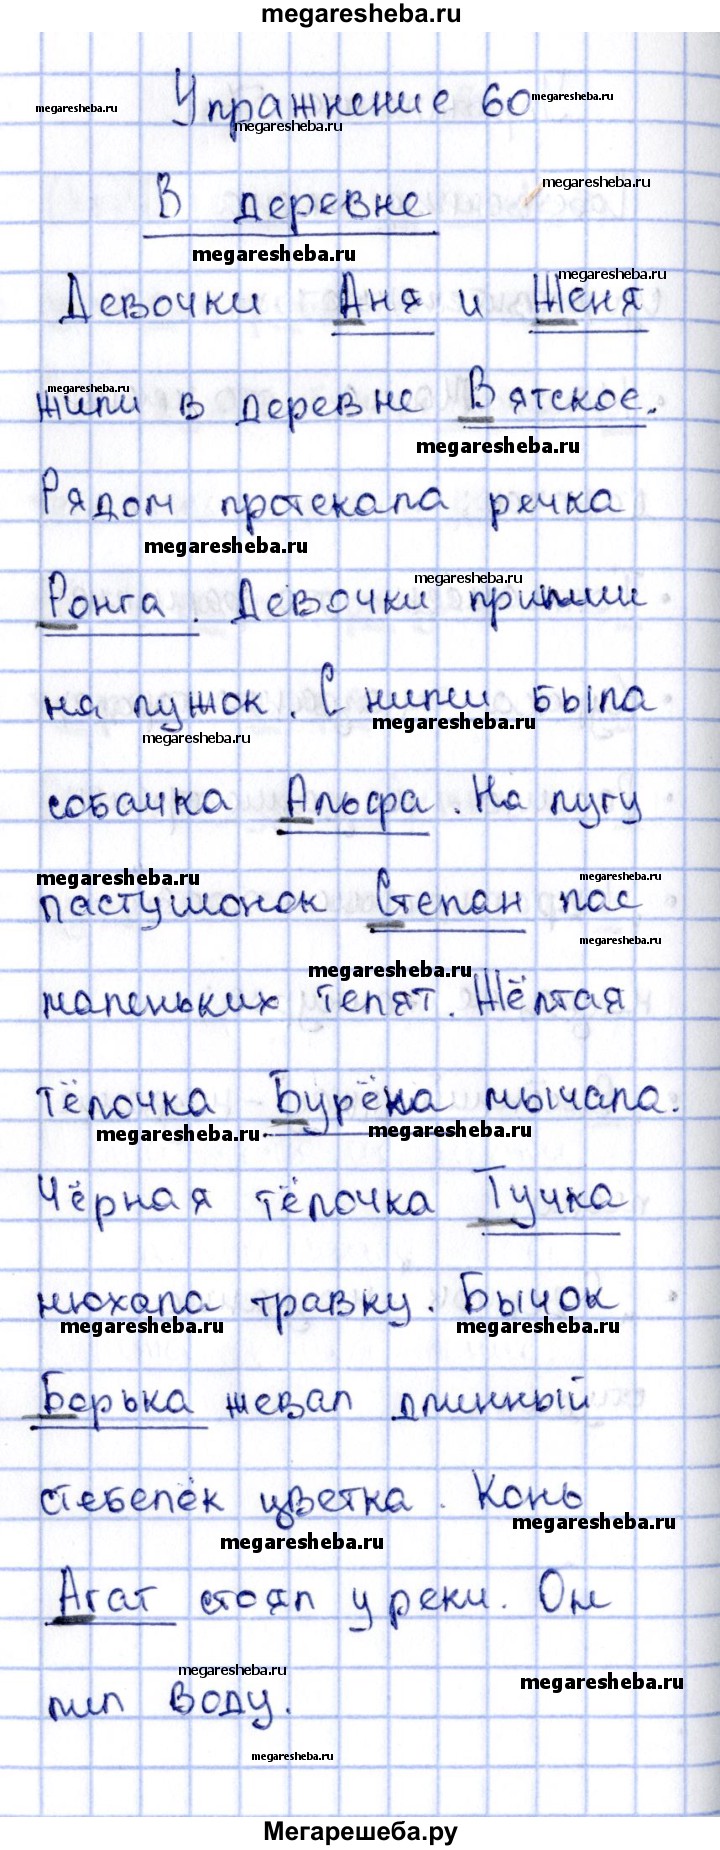 megaresheba.ru
Упражнение 60
megaresheba.ru
megaresheba.ru
megaresheba.ru
megaresheba.ru
В деревне
megaresheba.ru
megaresheba.ru
Девочки Аня и Женя
megaresheba.ru
жили в деревне Вятское.
megaresheba.ru
Рядом протекала речка
megaresheba.ru
megaresheba.ru
Ронга. Девочки пришли
на лужок. С ними была
megaresheba.ru
megaresheba.ru
собачка Альфа. На лугу
megaresheba.ru
megaresheba.ru
пастушонок Степан пас
megaresheba.ru
megaresheba.ru
маленьких телят. Жёлтая
тёлочка Бурёнка мычала.
megaresheba.ru
megaresheba.ru
Чёрная тёлочка Тучка
нюхала травку. Бычок
megaresheba.ru
megaresheba.ru
Борька жевал длинный
стебелёк цветка. Конь
megaresheba.ru
megaresheba.ru
Агат стоял у реки. Он
megaresheba.ru
megaresheba.ru
пил воду.
megaresheba.ru
Мегарешеба.ру